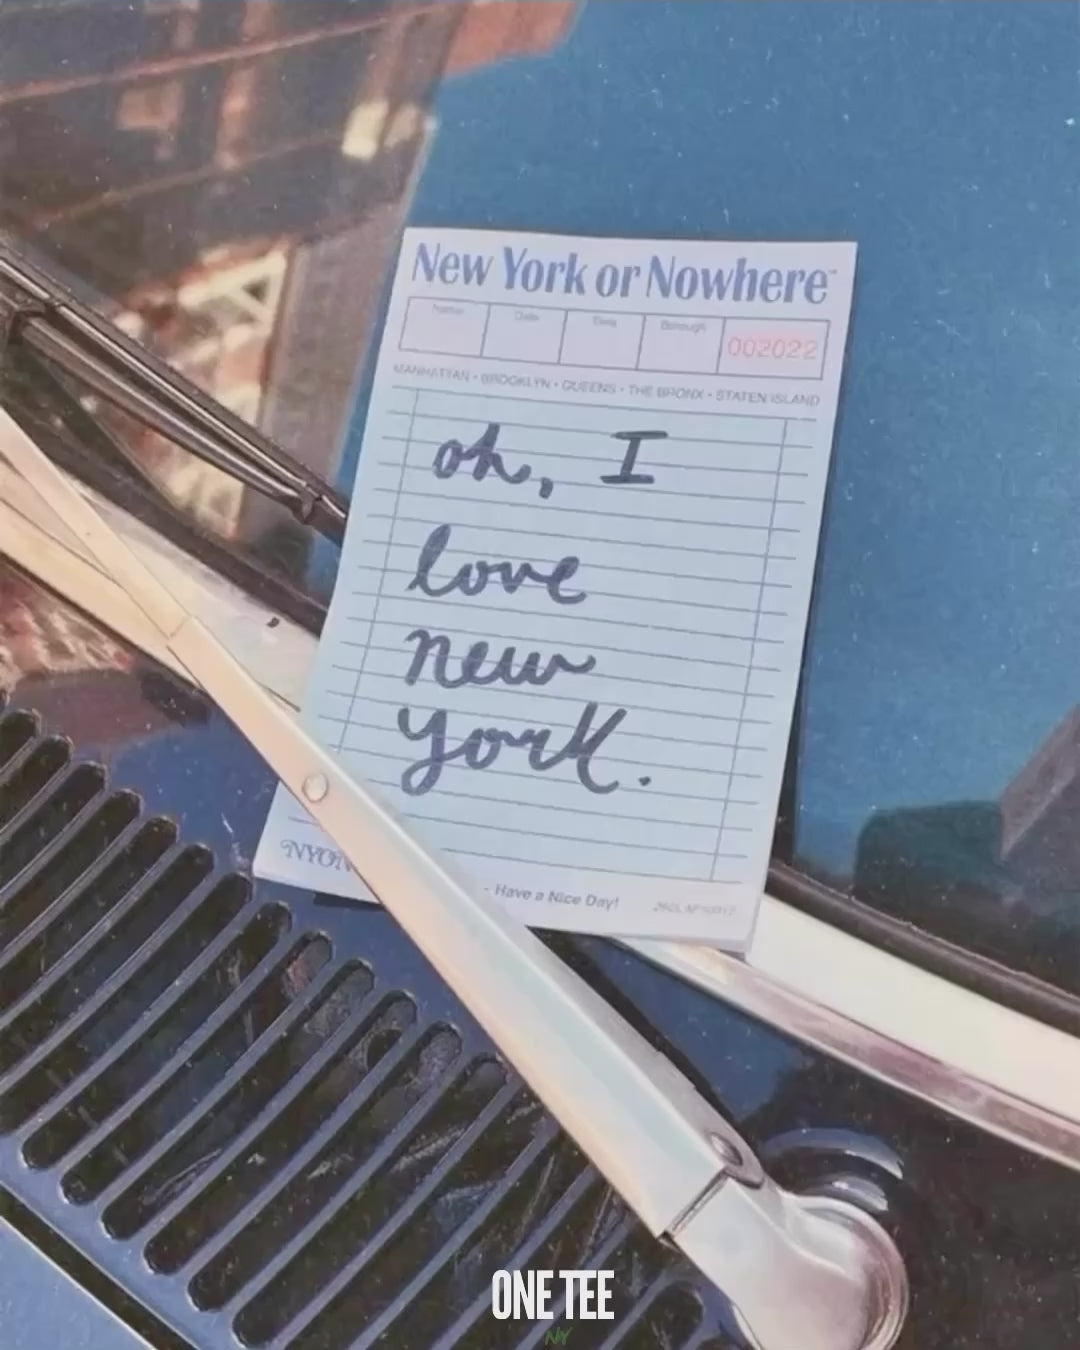 New York or Nowhere™
Name Date Borough
002022
MANHATTAN • BROOKLYN • QUEENS • THE BRONX • STATEN ISLAND
oh, I
love
new
york.
- Have a Nice Day!
ONE TEE
NY